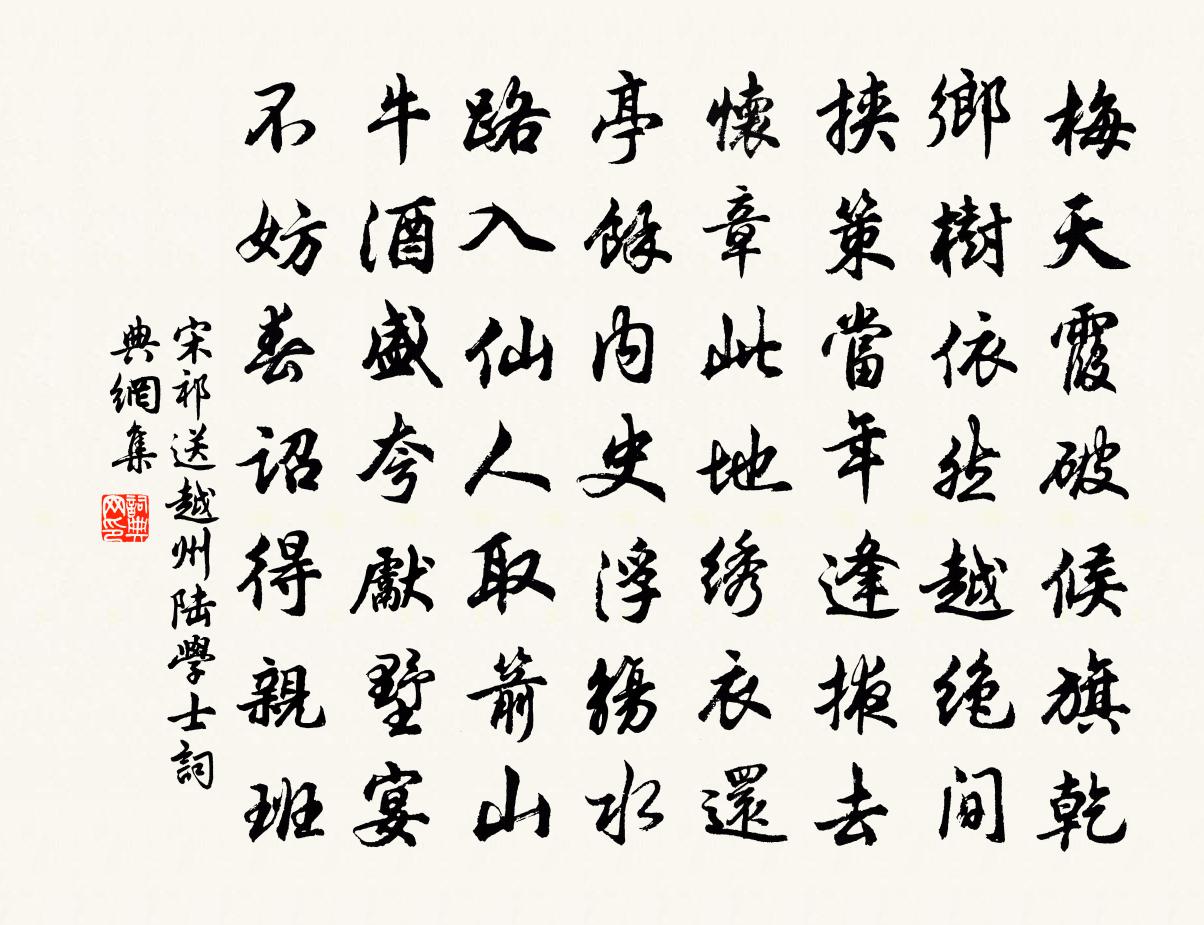 梅天霞破候旗乾
鄉樹依然越絶間
挾策當年逢掖去
懷章此地綉衣還
亭餘内史浮觴水
路入仙人取箭山
牛酒盛夸獻墅宴
不妨春詔得親班
宋祁送越州陆學士詞
典網集
詞典網印